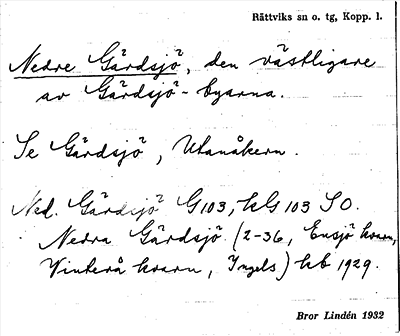 Rättviks sn o. tg, Kopp. l.
Nedre Gärdsjö, den västligare
av Gärdsjö-byarna.
Se Gärdsjö, Utanåkern.
Ned. Gärdsjö G103, kG 103 SO.
Nedra Gärdsjö (2-36, Ensjö kvarn,
Vinterå kvarn, Ingels) hb 1929.
Bror Lindén 1932